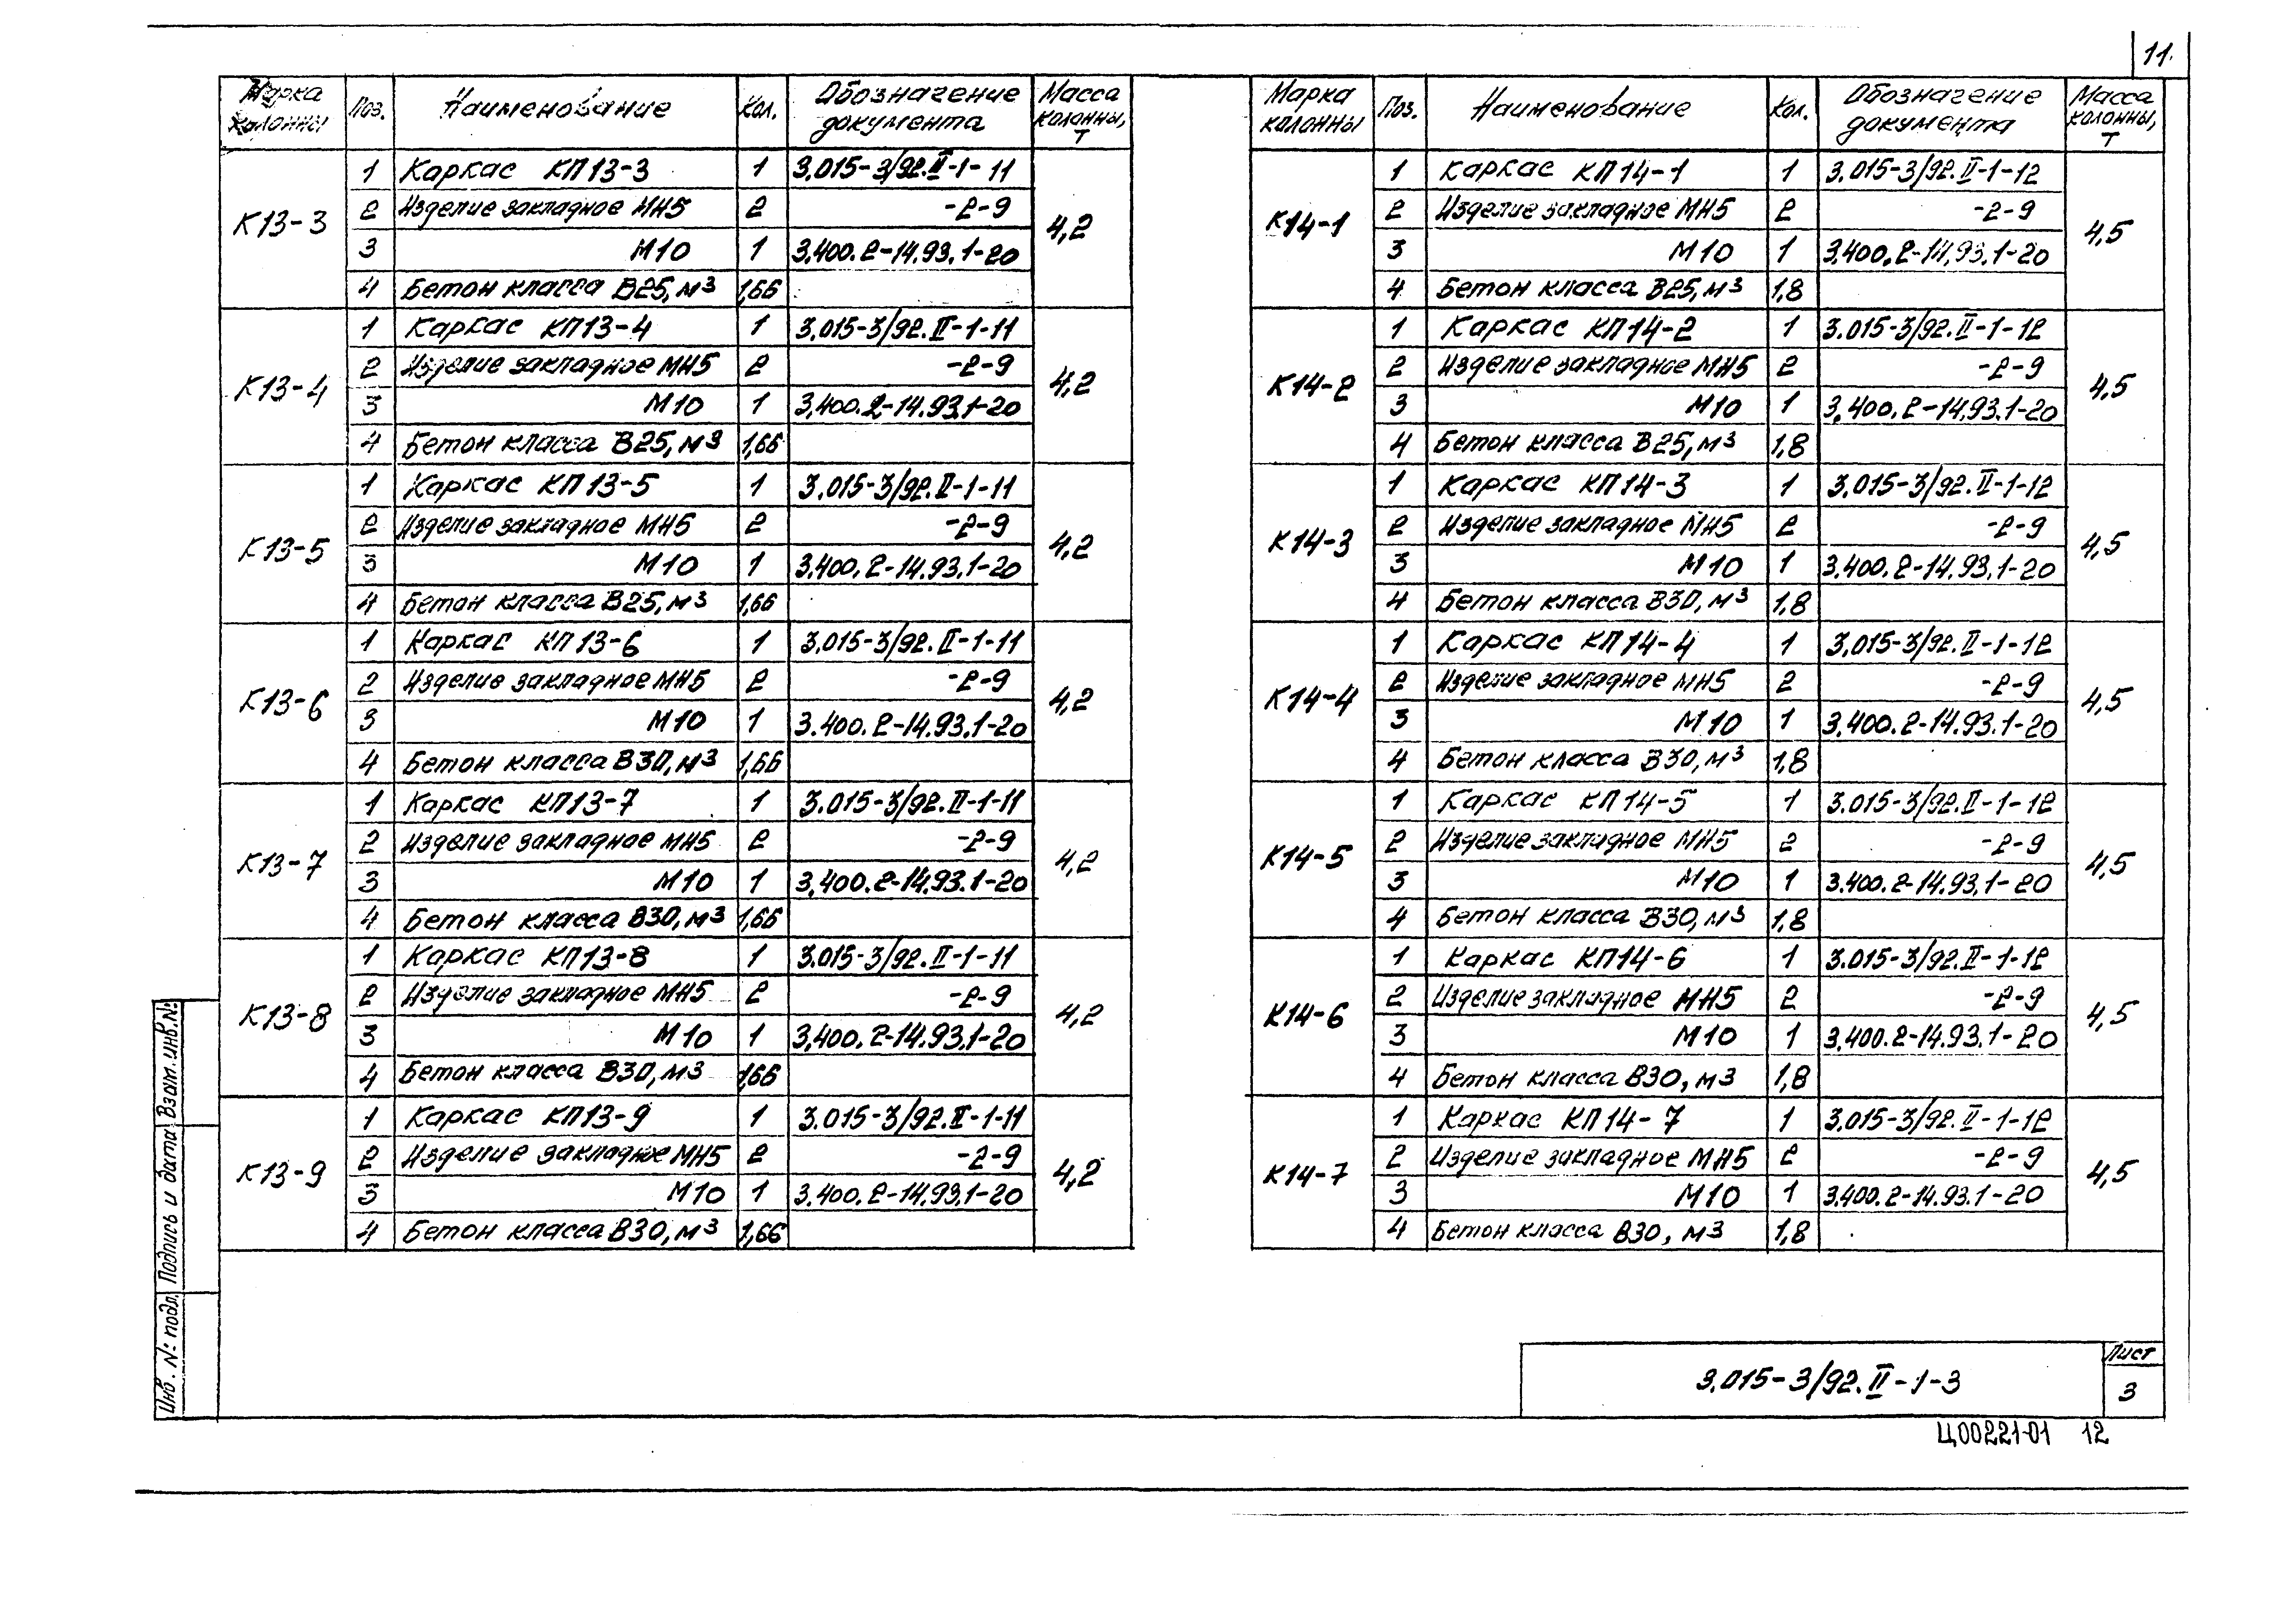 11.
Марка колонны Поз. Наименование Кол. Обозначение документа Масса колонны, т
К13-3 4,2
1 Каркас КП13-3 1 3.015-3/92.II-1-11
2 Изделие закладное МН5 2 -2-9
3 М10 1 3.400.2-14.93.1-20
4 Бетон класса В25, м3 1,66
К13-4 4,2
1 Каркас КП13-4 1 3.015-3/92.II-1-11
2 Изделие закладное МН5 2 -2-9
3 М10 1 3.400.2-14.93.1-20
4 Бетон класса В25, м3 1,66
К13-5 4,2
1 Каркас КП13-5 1 3.015-3/92.II-1-11
2 Изделие закладное МН5 2 -2-9
3 М10 1 3.400.2-14.93.1-20
4 Бетон класса В25, м3 1,66
К13-6 4,2
1 Каркас КП13-6 1 3.015-3/92.II-1-11
2 Изделие закладное МН5 2 -2-9
3 М10 1 3.400.2-14.93.1-20
4 Бетон класса В30, м3 1,66
К13-7 4,2
1 Каркас КП13-7 1 3.015-3/92.II-1-11
2 Изделие закладное МН5 2 -2-9
3 М10 1 3.400.2-14.93.1-20
4 Бетон класса В30, м3 1,66
К13-8 4,2
1 Каркас КП13-8 1 3.015-3/92.II-1-11
2 Изделие закладное МН5 2 -2-9
3 М10 1 3.400.2-14.93.1-20
4 Бетон класса В30, м3 1,66
К13-9 4,2
1 Каркас КП13-9 1 3.015-3/92.II-1-11
2 Изделие закладное МН5 2 -2-9
3 М10 1 3.400.2-14.93.1-20
4 Бетон класса В30, м3 1,66
Марка колонны Поз. Наименование Кол. Обозначение документа Масса колонны, т
К14-1 4,5
1 Каркас КП14-1 1 3.015-3/92.II-1-12
2 Изделие закладное МН5 2 -2-9
3 М10 1 3.400.2-14.93.1-20
4 Бетон класса В25, м3 1,8
К14-2 4,5
1 Каркас КП14-2 1 3.015-3/92.II-1-12
2 Изделие закладное МН5 2 -2-9
3 М10 1 3.400.2-14.93.1-20
4 Бетон класса В25, м3 1,8
К14-3 4,5
1 Каркас КП14-3 1 3.015-3/92.II-1-12
2 Изделие закладное МН5 2 -2-9
3 М10 1 3.400.2-14.93.1-20
4 Бетон класса В30, м3 1,8
К14-4 4,5
1 Каркас КП14-4 1 3.015-3/92.II-1-12
2 Изделие закладное МН5 2 -2-9
3 М10 1 3.400.2-14.93.1-20
4 Бетон класса В30, м3 1,8
К14-5 4,5
1 Каркас КП14-5 1 3.015-3/92.II-1-12
2 Изделие закладное МН5 2 -2-9
3 М10 1 3.400.2-14.93.1-20
4 Бетон класса В30, м3 1,8
К14-6 4,5
1 Каркас КП14-6 1 3.015-3/92.II-1-12
2 Изделие закладное МН5 2 -2-9
3 М10 1 3.400.2-14.93.1-20
4 Бетон класса В30, м3 1,8
К14-7 4,5
1 Каркас КП14-7 1 3.015-3/92.II-1-12
2 Изделие закладное МН5 2 -2-9
3 М10 1 3.400.2-14.93.1-20
4 Бетон класса В30, м3 1,8
Инв. № подл. Подпись и дата Взам. инв. №
3.015-3/92.II-1-3
Лист
3
Ц00221-01 12